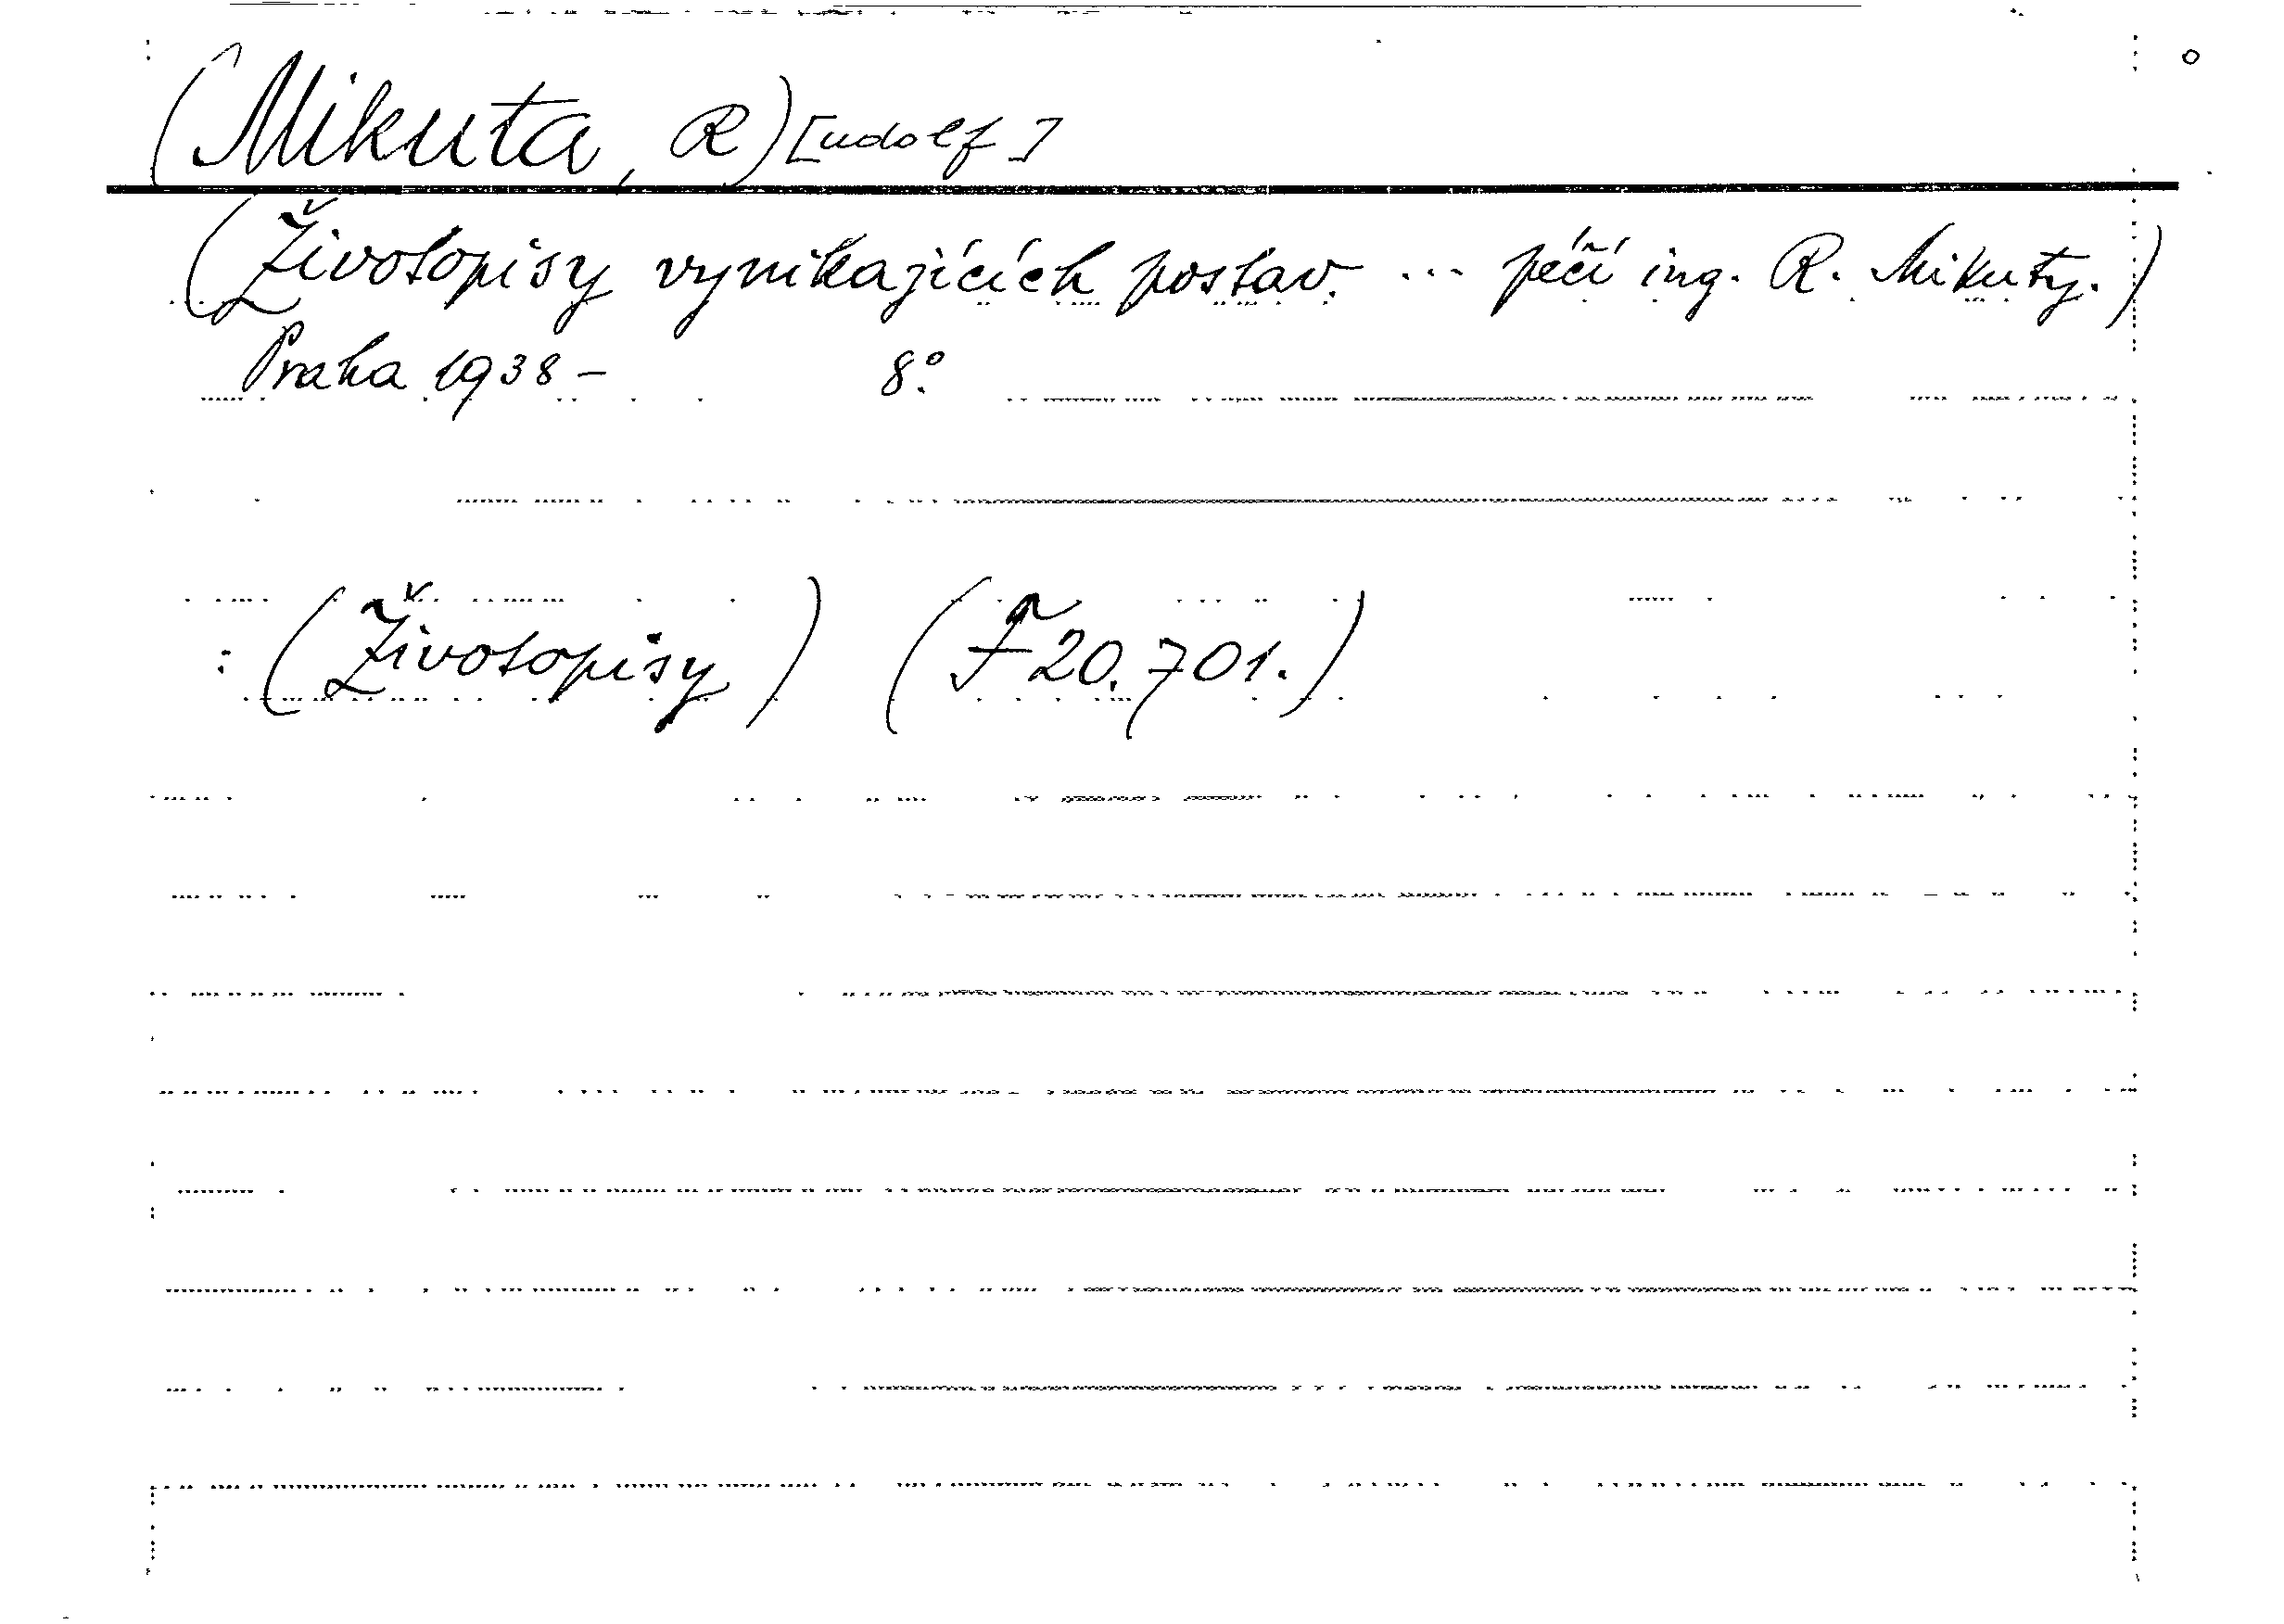 (Mikuta, R)[udolf]
(Životopisy vynikajících postav. ... péčí ing. R. Mikuty.)
Praha 1938- 8°
: (Životopisy) (F 20.701.)